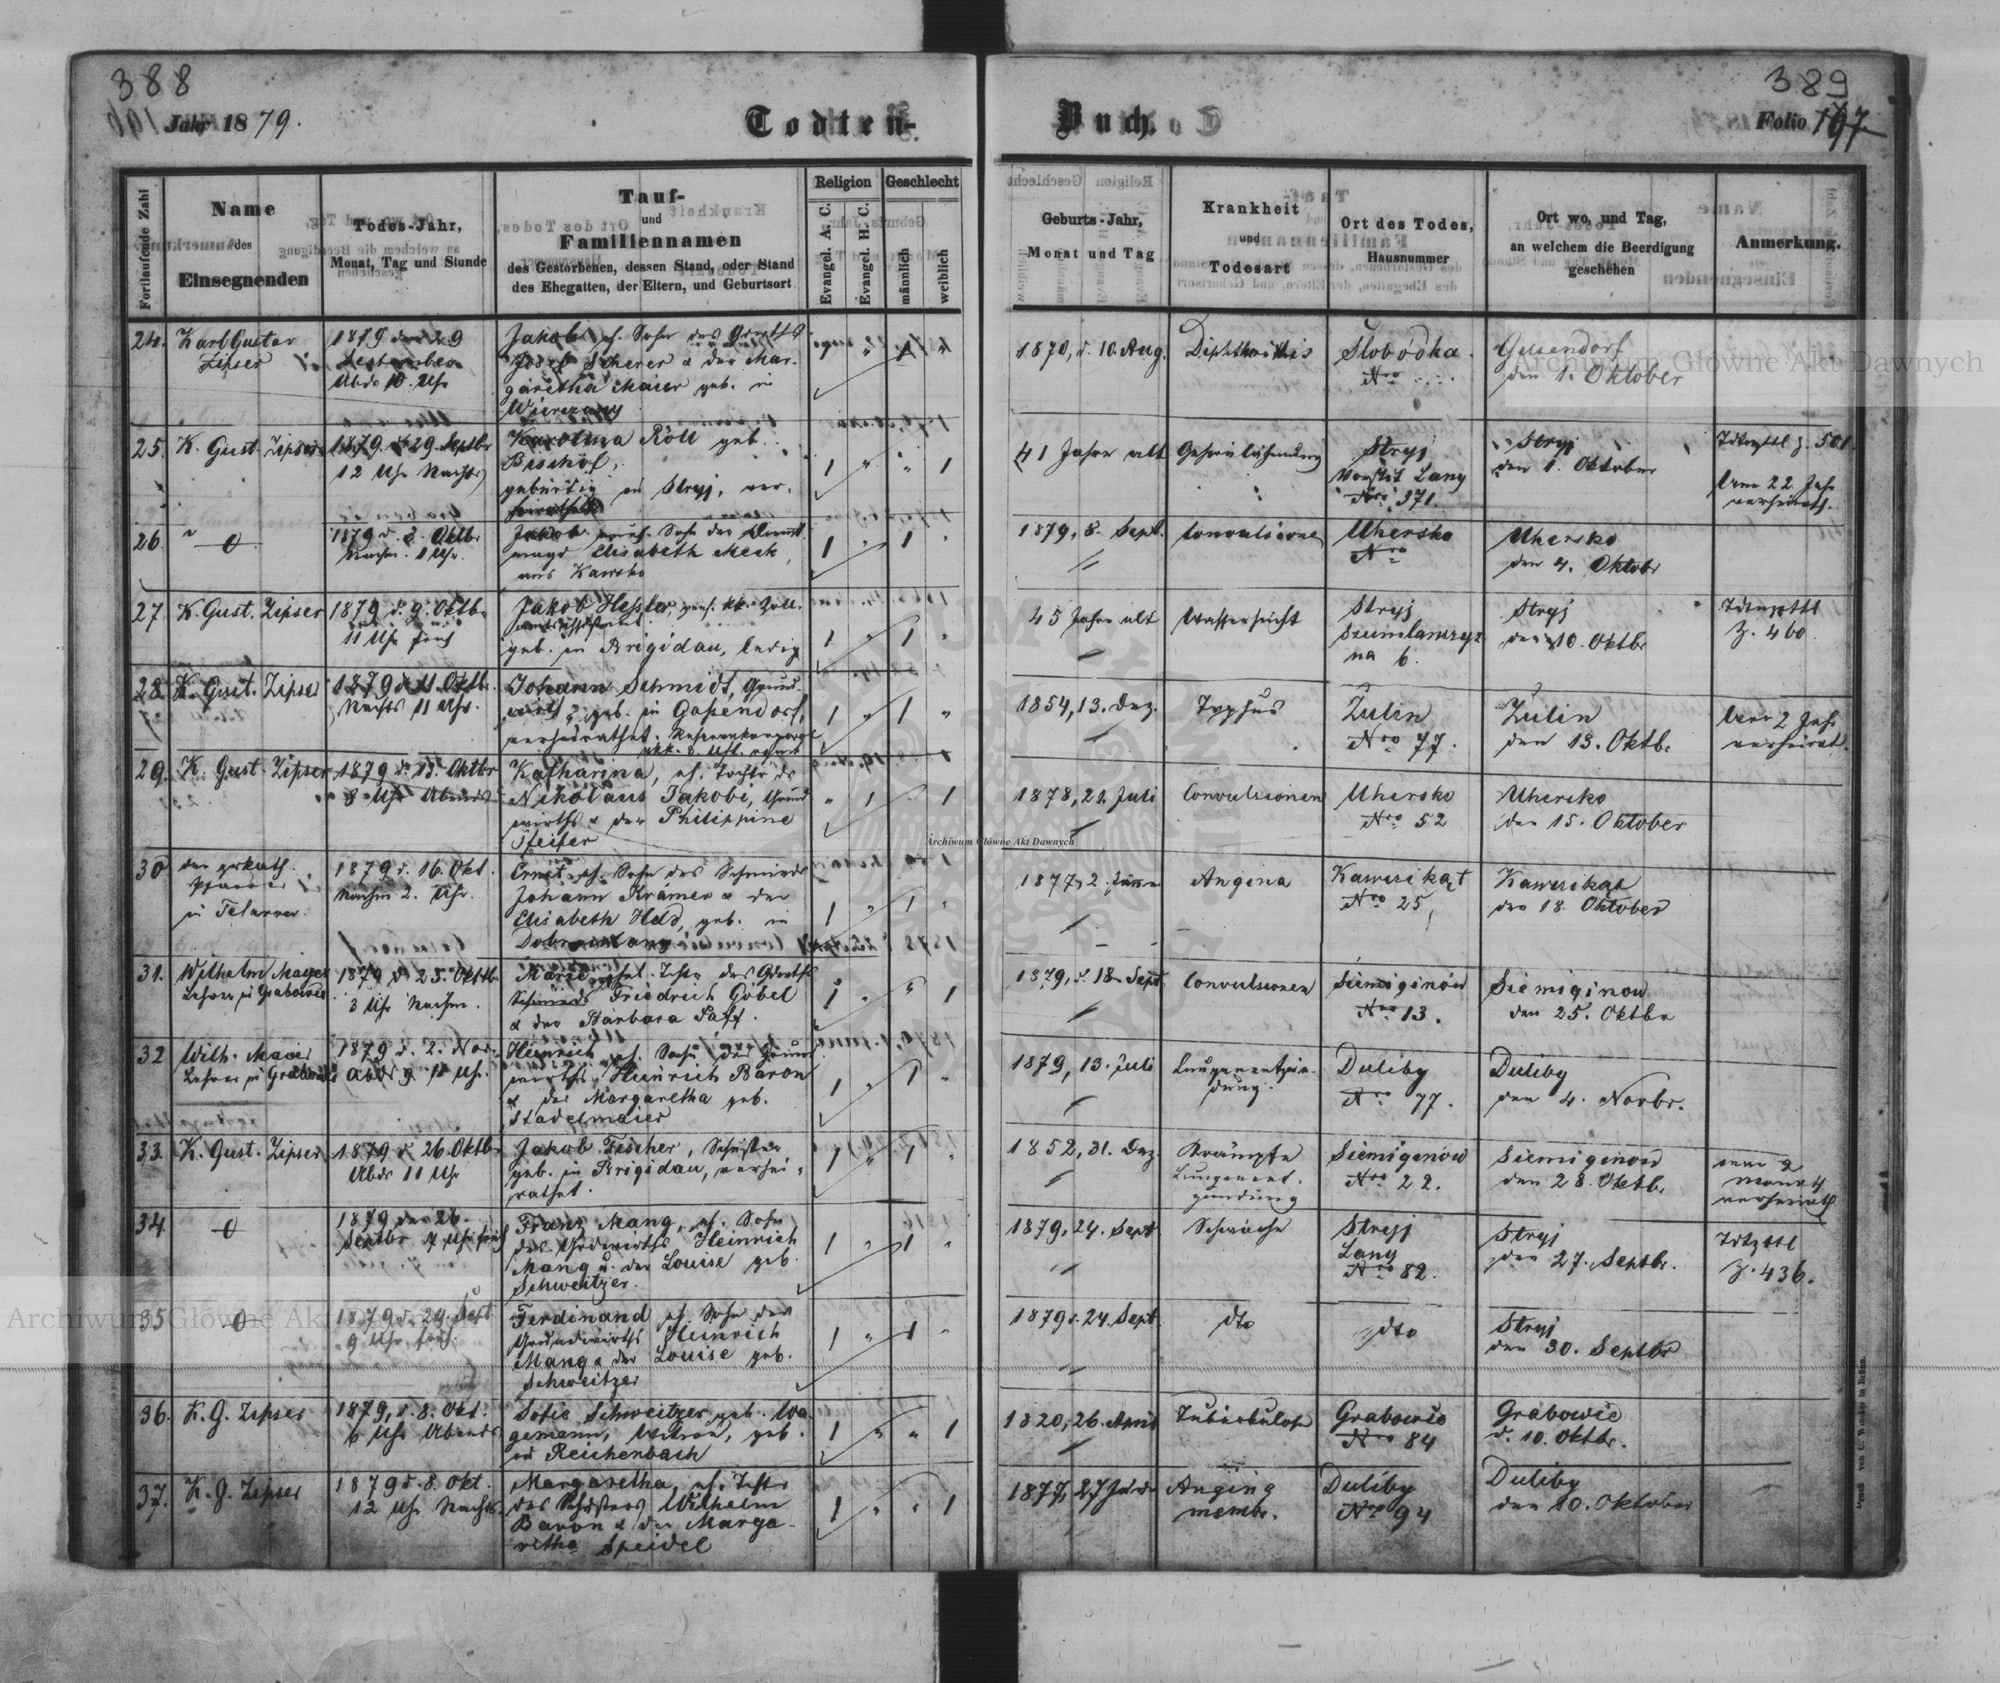 388
389
Jahr 1879.
Todten-
Buch.
Folio 197
Fortlaufende Zahl
Name
des
Einsegnenden
Todes-Jahr,
Monat, Tag und Stunde
Tauf-
und
Familiennamen
des Gestorbenen, dessen Stand, oder Stand
des Ehegatten, der Eltern, und Geburtsort
Religion
Evangel. A. C.
Evangel. H. C.
Geschlecht
männlich
weiblich
Geburts-Jahr,
Monat und Tag
Krankheit
und
Todesart
Ort des Todes,
Hausnummer
Ort wo, und Tag,
an welchem die Beerdigung
geschehen
Anmerkung.
24. Karl Gustav
Zipser
1879 den 29
September
Abds 10. Uhr
Jakob, eh. Sohn des Grwths
Josef Scherer & der Mar-
garetha Maier geb. in
Wierczany
1870, d. 10. Aug.
Diphtheritis
Slobódka.
Nro
Gelsendorf
den 1. Oktober
25. K. Gust. Zipser
1879. d 29. Septbr
12 Uhr Nachts
Karolina Röll geb.
Bischof,
gebürtig in Stryj, ver-
heirathet
1 " " 1
41 Jahre alt
Gehirnlähmung
Stryj
Vorstdt Lany
Nro 371.
Stryj
den 1. Oktober
Tdtnzttl Z. 501.
22 Jahr
verheirath.
26 " O
1879 d. 2. Oktbr
Nachm. 1 Uhr.
Jakob uneh. Sohn der Dienst-
magd Elisabeth Meck,
aus Kawsko
1 " 1 "
1879, 8. Sept.
Convulsionen
Uhersko
Nro
Uhersko
den 4. Oktobr
27 K. Gust. Zipser
1879 d. 9. Oktbr
11 Uhr früh
Jakob Hessler, pens. kk. Zoll-
geb. in Brigidau, ledig
1 " 1 "
45 Jahre alt
Wassersucht
Stryj
na 6.
Stryj
den 10. Oktbr
Tdtnzttl
Z. 460.
28. K. Gust. Zipser
1879 d. 11. Oktbr.
Nachts 11 Uhr.
Johann Schmidt, Grund-
wirth, geb. in Gassendorf,
verheirathet.
1 " 1 "
1854, 13. Dez.
Typhus
Zulin
Nro 77.
Zulin
den 13. Oktbr.
2 Jahr
verheirat.
29. K. Gust. Zipser
1879 d. 13. Oktbr
8 Uhr Abends
Katharina, eh. Tochter des
Nikolaus Jakobi, Grund
wirths & der Philippine
Pfeifer
" 1 " 1
1878, 21. Juli
Convulsionen
Uhersko
Nro 52
Uhersko
den 15. Oktober
30 der grkath.
Pfarrer
in
1879 d. 16. Okt.
Nachm 2. Uhr.
Ernst eh. Sohn des Schmieds
Johann Krämer & der
Elisabeth Held, geb. in
1 " 1 "
1877, 2. Jänner
Angina
Kawczikąt
Nro 25
Kawczikąt
den 18. Oktober
31. Wilhelm Mayer
Lehrer in Grabowce
1879 d 23. Oktbr
3 Uhr Nachm.
Marie, ehel. Tchtr des Grwths
Schmieds Friedrich Göbel
& der Barbara Paff.
1 " " 1
1879, d. 18. Sept
Convulsionen
Siemiginów
Nro 13.
Siemiginow
den 25. Oktbr
32 Wilh. Maier
Lehrer in Grabowce
1879 d. 2. Nov.
Heinrich, eh. Sohn des Grund
wirths Heinrich Baron
& der Margaretha geb.
Stadelmaier
1 " 1 "
1879, 13. Juli
Lungenentzün-
dung.
Duliby
Nro 77.
Duliby
den 4. Novbr.
33. K. Gust. Zipser
1879 d 26. Oktbr
Abds 11 Uhr
Jakob Fischer, Schuster
geb. in Brigidau, verhei-
rathet.
1 " 1 "
1852, 31. Dez
Krämpfe
Siemiginów
Nro 22.
Siemiginow
den 28. Oktbr.
2
Monath
verheirath
34. O
1879 den 26.
Septbr 7 Uhr früh
Franz Mang, eh. Sohn
des Grdwirths Heinrich
Mang u. der Louise geb.
Schweitzer.
1 " 1 "
1879, 24. Sept
Schwäche
Stryj
Lany
Nro 82.
Stryj
den 27. Septbr.
Tdtzttl
Z. 436.
35 O
1879 d. 29. Sept
9 Uhr früh.
Ferdinand eh. Sohn des
Grundwirths Heinrich
Mang & der Louise geb.
Schweitzer
1 " 1 "
1879 d. 24. Sept
dto
dto
Stryj
den 30. Septbr
36. K. G. Zipser
1879, d. 8. Okt.
6 Uhr Abends
Sofie Schweitzer geb. Wa-
gemann, Witwe, geb.
in Reichenbach
1 " " 1
1820, 26. April
Tuberkulose
Grabowce
Nro 84
Grabowce
d. 10. Oktbr.
37. K. G. Zipser
1879 d. 8. Okt.
12 Uhr Nachts
Margaretha, eh. Tchtr
des Schusters Wilhelm
Baron & der Marga-
retha Speidel
1 " " 1
1877, 27 Jän.
Angina
membr.
Duliby
Nro 94
Duliby
den 10. Oktober
Archiwum Główne Akt Dawnych
Archiwum Główne Akt Dawnych
Archiwum Główne Akt Dawnych